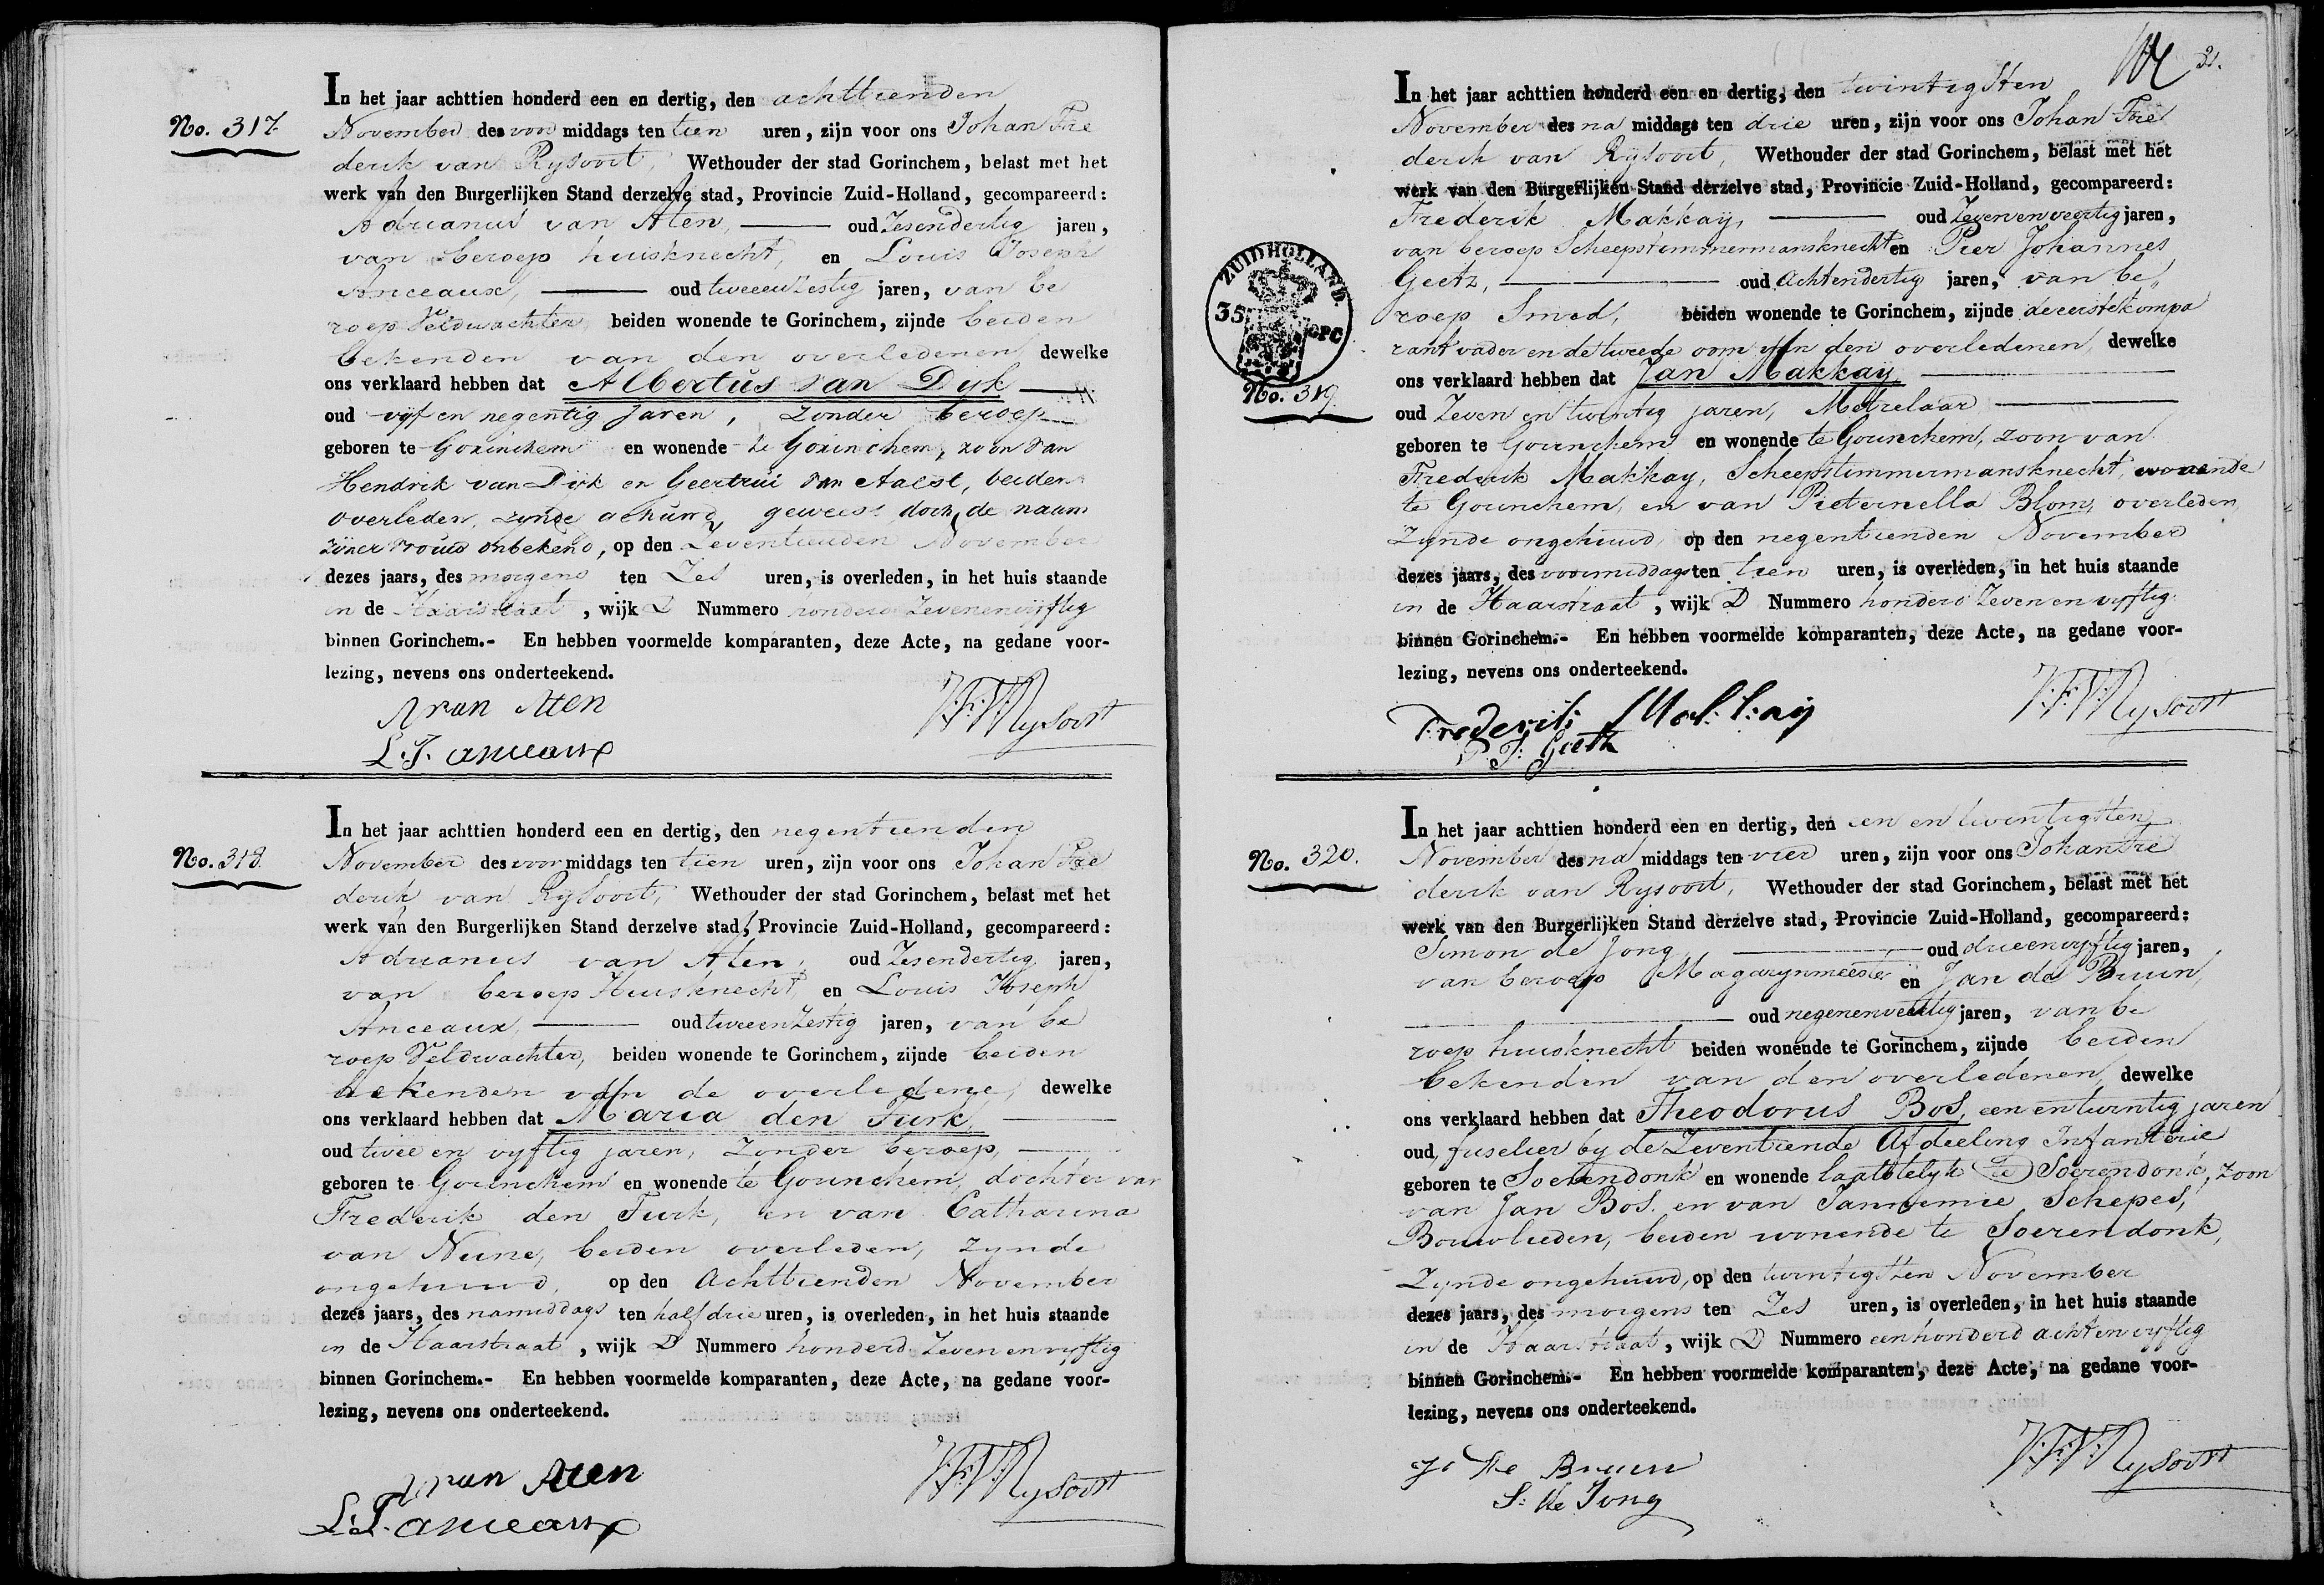 In het jaar achttien honderd een en dertig, den achttienden
No. 317. November des voor middags ten tien uren, zijn voor ons Johan Fre
derik van Rysoort, Wethouder der stad Gorinchem, belast met het
werk van den Burgerlijken Stand derzelve stad, Provincie Zuid-Holland, gecompareerd:
Adrianus van Aten, oud Zesendertig jaren,
van beroep huisknecht, en Louis Joseph
Anceaux, oud tweeenzestig jaren, van be
roep Veldwachter, beiden wonende te Gorinchem, zijnde beiden
bekenden van den overledenen dewelke
ons verklaard hebben dat Albertus van Dyk
oud vyf en negentig jaren, zonder beroep
geboren te Gorinchem en wonende te Gorinchem, zoon van
Hendrik van Dijk en Geertrui van Aalst, beiden
overleden, zynde gehuwd geweest doch de naam
zijner vrouw onbekend, op den Zeventienden November
dezes jaars, des morgens ten Zes uren, is overleden, in het huis staande
in de Haarstraat, wijk D Nummero honderd Zevenenvyftig
binnen Gorinchem.- En hebben voormelde komparanten, deze Acte, na gedane voor-
lezing, nevens ons onderteekend.
A van Aten
J.F.V. Rysoort
L.J. anceaux
In het jaar achttien honderd een en dertig, den negentienden
No. 318. November des voor middags ten tien uren, zijn voor ons Johan Fre
derik van Rysoort, Wethouder der stad Gorinchem, belast met het
werk van den Burgerlijken Stand derzelve stad, Provincie Zuid-Holland, gecompareerd:
Adrianus van Aten, oud Zesendertig jaren,
van beroep Huisknecht, en Louis Joseph
Anceaux, oud tweeenzestig jaren, van be
roep Veldwachter, beiden wonende te Gorinchem, zijnde beiden
bekenden van de overledene, dewelke
ons verklaard hebben dat Maria den Turk,
oud twee en vyftig jaren, Zonder beroep,
geboren te Gorinchem en wonende te Gorinchem, dochter van
Frederik den Turk, en van Catharina
van Neine, beiden overleden, zynde
ongehuwd, op den Achttienden November
dezes jaars, des namiddags ten half drie uren, is overleden, in het huis staande
in de Haarstraat, wijk D Nummero honderd Zeven en vyftig
binnen Gorinchem.- En hebben voormelde komparanten, deze Acte, na gedane voor-
lezing, nevens ons onderteekend.
A van Aten
J.F.V. Rysoort
L.J. anceaux
In het jaar achttien honderd een en dertig, den twintigsten
November des na middags ten drie uren, zijn voor ons Johan Fre
derik van Rysoort, Wethouder der stad Gorinchem, belast met het
werk van den Burgerlijken Stand derzelve stad, Provincie Zuid-Holland, gecompareerd:
Frederik Makkay, oud Zevenenveertig jaren,
van beroep Scheepstimmermansknecht en Pier Johannes
Geetz, oud Achtendertig jaren, van be„
roep Smed, beiden wonende te Gorinchem, zijnde de eerste kompa
rant vader en de tweede oom van den overledenen dewelke
ons verklaard hebben dat Jan Makkay
ZUIDHOLLAND.
35
OPC
No. 319
oud Zeven en twintig jaren, Metzelaar
geboren te Gorinchem en wonende te Gorinchem, zoon van
Frederik Makkay, Scheepstimmermansknecht, wonende
te Gorinchem, en van Pieternella Blom, overleden,
Zynde ongehuwd, op den negentienden November
dezes jaars, des voormiddags ten tien uren, is overleden, in het huis staande
in de Haarstraat, wijk D Nummero honderd Zeven en vyftig
binnen Gorinchem.- En hebben voormelde komparanten, deze Acte, na gedane voor-
lezing, nevens ons onderteekend.
Frederik Makkay
J.F.V. Rysoort
P. J. Geetz
In het jaar achttien honderd een en dertig, den een en twintigsten
No. 320. November des na middags ten vier uren, zijn voor ons Johan Fre
derik van Rysoort, Wethouder der stad Gorinchem, belast met het
werk van den Burgerlijken Stand derzelve stad, Provincie Zuid-Holland, gecompareerd:
Simon de Jong, oud drieenvyftig jaren,
van beroep Magazynmeester en Jan de Bruin,
oud negenenveertig jaren, van be
roep huisknecht beiden wonende te Gorinchem, zijnde beiden
bekenden van den overledenen, dewelke
ons verklaard hebben dat Theodorus Bos, een en twintig jaren
oud, fuselier by de Zeventiende Afdeeling Infanterie
geboren te Soerendonk en wonende laatstelyk te Soerendonk, zoon
van Jan Bos en van Jannemie Schepes,
Bouwlieden, beiden wonende te Soerendonk,
Zynde ongehuwd, op den twintigsten November
dezes jaars, des morgens ten Zes uren, is overleden, in het huis staande
in de Haarstraat, wijk D Nummero eenhonderd achtenvyftig
binnen Gorinchem.- En hebben voormelde komparanten, deze Acte, na gedane voor-
lezing, nevens ons onderteekend.
J. de Bruin
J.F.V. Rysoort
S: de Jong